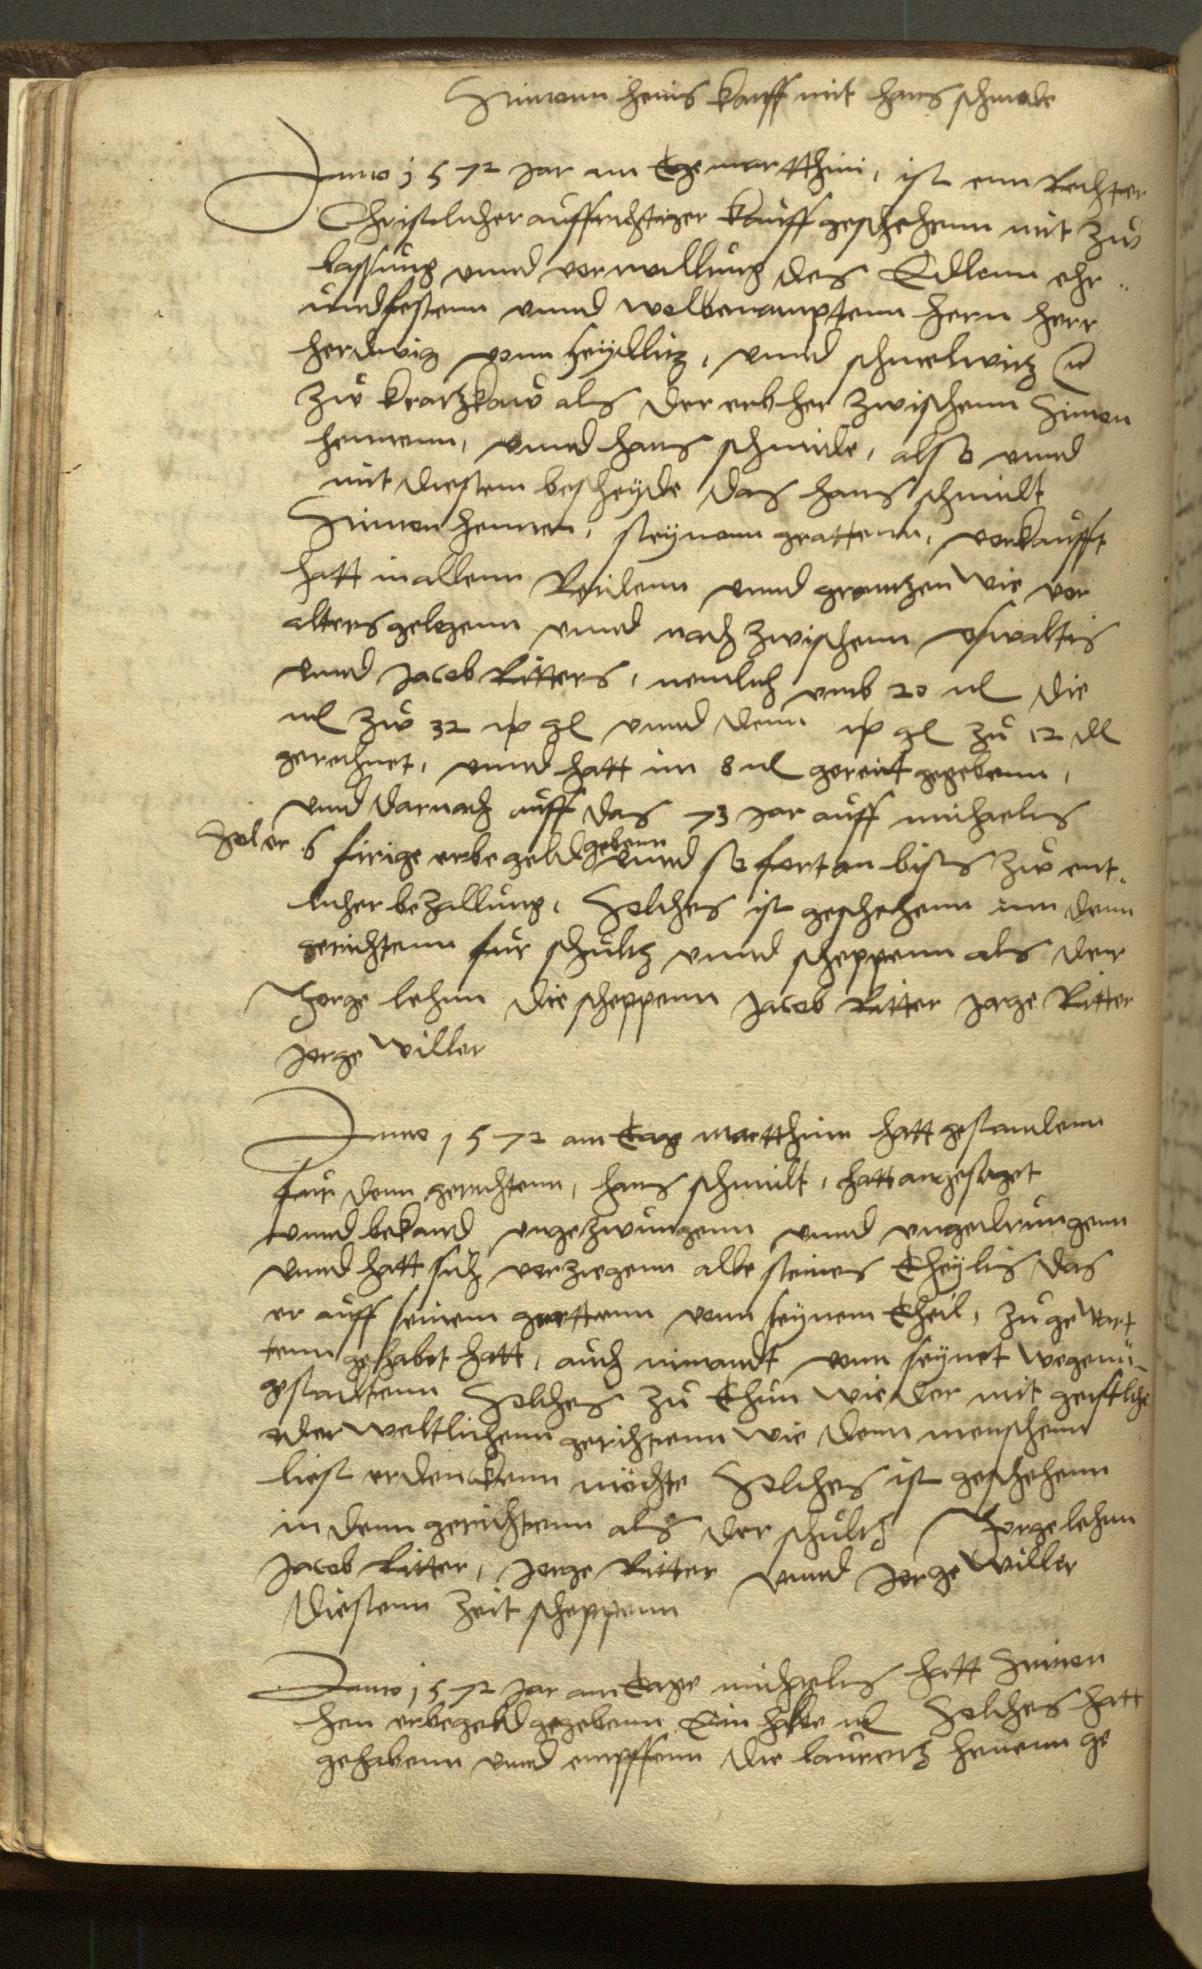 Simonn heins kauff mit hans schmide
Anno 1572 Jar am Tage martthini, ist ein Rechter
Christlicher auffrichtiger kauff geschehenn mit zw
lassung vnnd vorwillung des Edlenn ehr
undfestenn vnnd wolbenamptenn hern herr
herdwig vonn seydlitz, vnnd schmelwitz
zw kratzkaw als der erbher zwischenn Simon
hennenn, vnnd hans schmide, also vnnd
mit diessem bescheyde das hans schmidt
Simon hennen, seynenn gartten, vorkaufft
hatt in allenn Reidenn vnnd grentzen wie vor
alters gelegenn vnnd nach zwischenn oswaltis
vnnd Jacob Ritters, nemlich vmb 20 ml die
ml zw 32 gl vnnd denn gl zu 12 dl
gerechnet, vnnd hatt im 8 ml gereit gegebenn,
vnnd darnach auff das 73 Jar auff michaelis
sol er 6 firtge erbegeld gebenn vnnd so fort an biss zw ent
licher bezallung, Solches ist geschehenn inn denn
gerichtenn fur schultz vnnd scheppenn als der
Jorge lehnn die scheppenn Jacob Ritter Jorge Ritter
Jorge willer
Anno 1572 am tage martthinn hatt gestandenn
fur denn gerichtenn, hans schmidt, hatt angesaget
vnnd bekand ungezwungenn vnnd vngedrungenn
vnnd hatt sich vorziegenn alle seines theylis das
er auff seinem gartten vonn seynem theil, zu gewart
tenn gehabet hatt, auch nimandt vonn seynet wegenn
gestadtenn Solches zu thun wieder mit geistliche
oder weltlichenn gerichtenn wie denn menschenn
liest erdenckenn möchte Solches ist geschehenn
in denn gerichtenn als der schultz Jorge lehnn
Jacob Ritter, Jorge Ritter vnnd Jorge willer
diessenn zeit scheppenn
Anno 1572 Jar am tage michaelis hatt Simon
hen erbegeld gegebenn Ein halbe ml Solches hatt
gehabenn vnnd empffenn die laurentz henenn ge